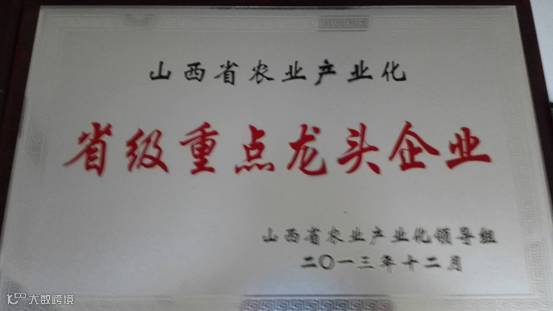 山西省农业产业化
省级重点龙头企业
山西省农业产业化领导组
二〇一三年十二月
大数跨境